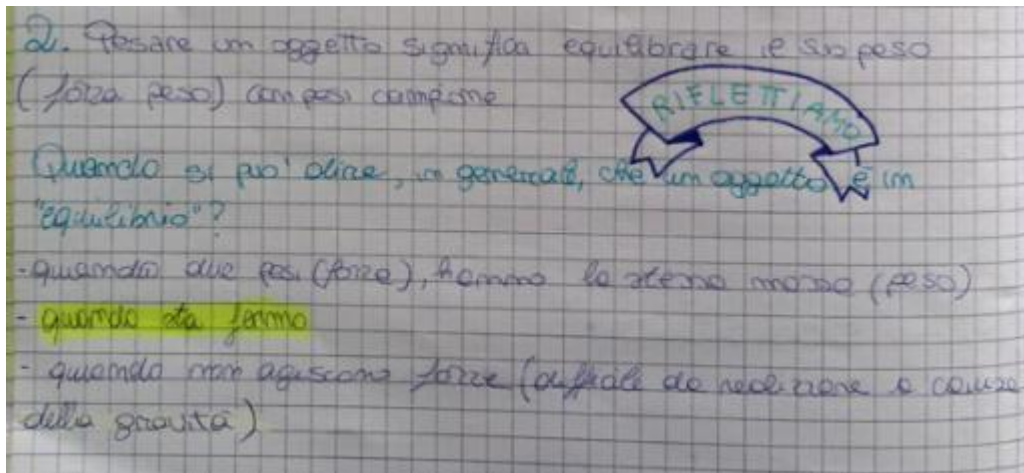 2. Pesare un oggetto significa equilibrare il suo peso
(forza peso) con pesi campione
RIFLETTIAMO
Quando si puo' dire, in generale, che un oggetto è in
"equilibrio"?
- quando due pesi (forze), hanno la stessa massa (peso)
- quando sta fermo
- quando non agiscono forze (difficile da realizzare a causa
della gravità)